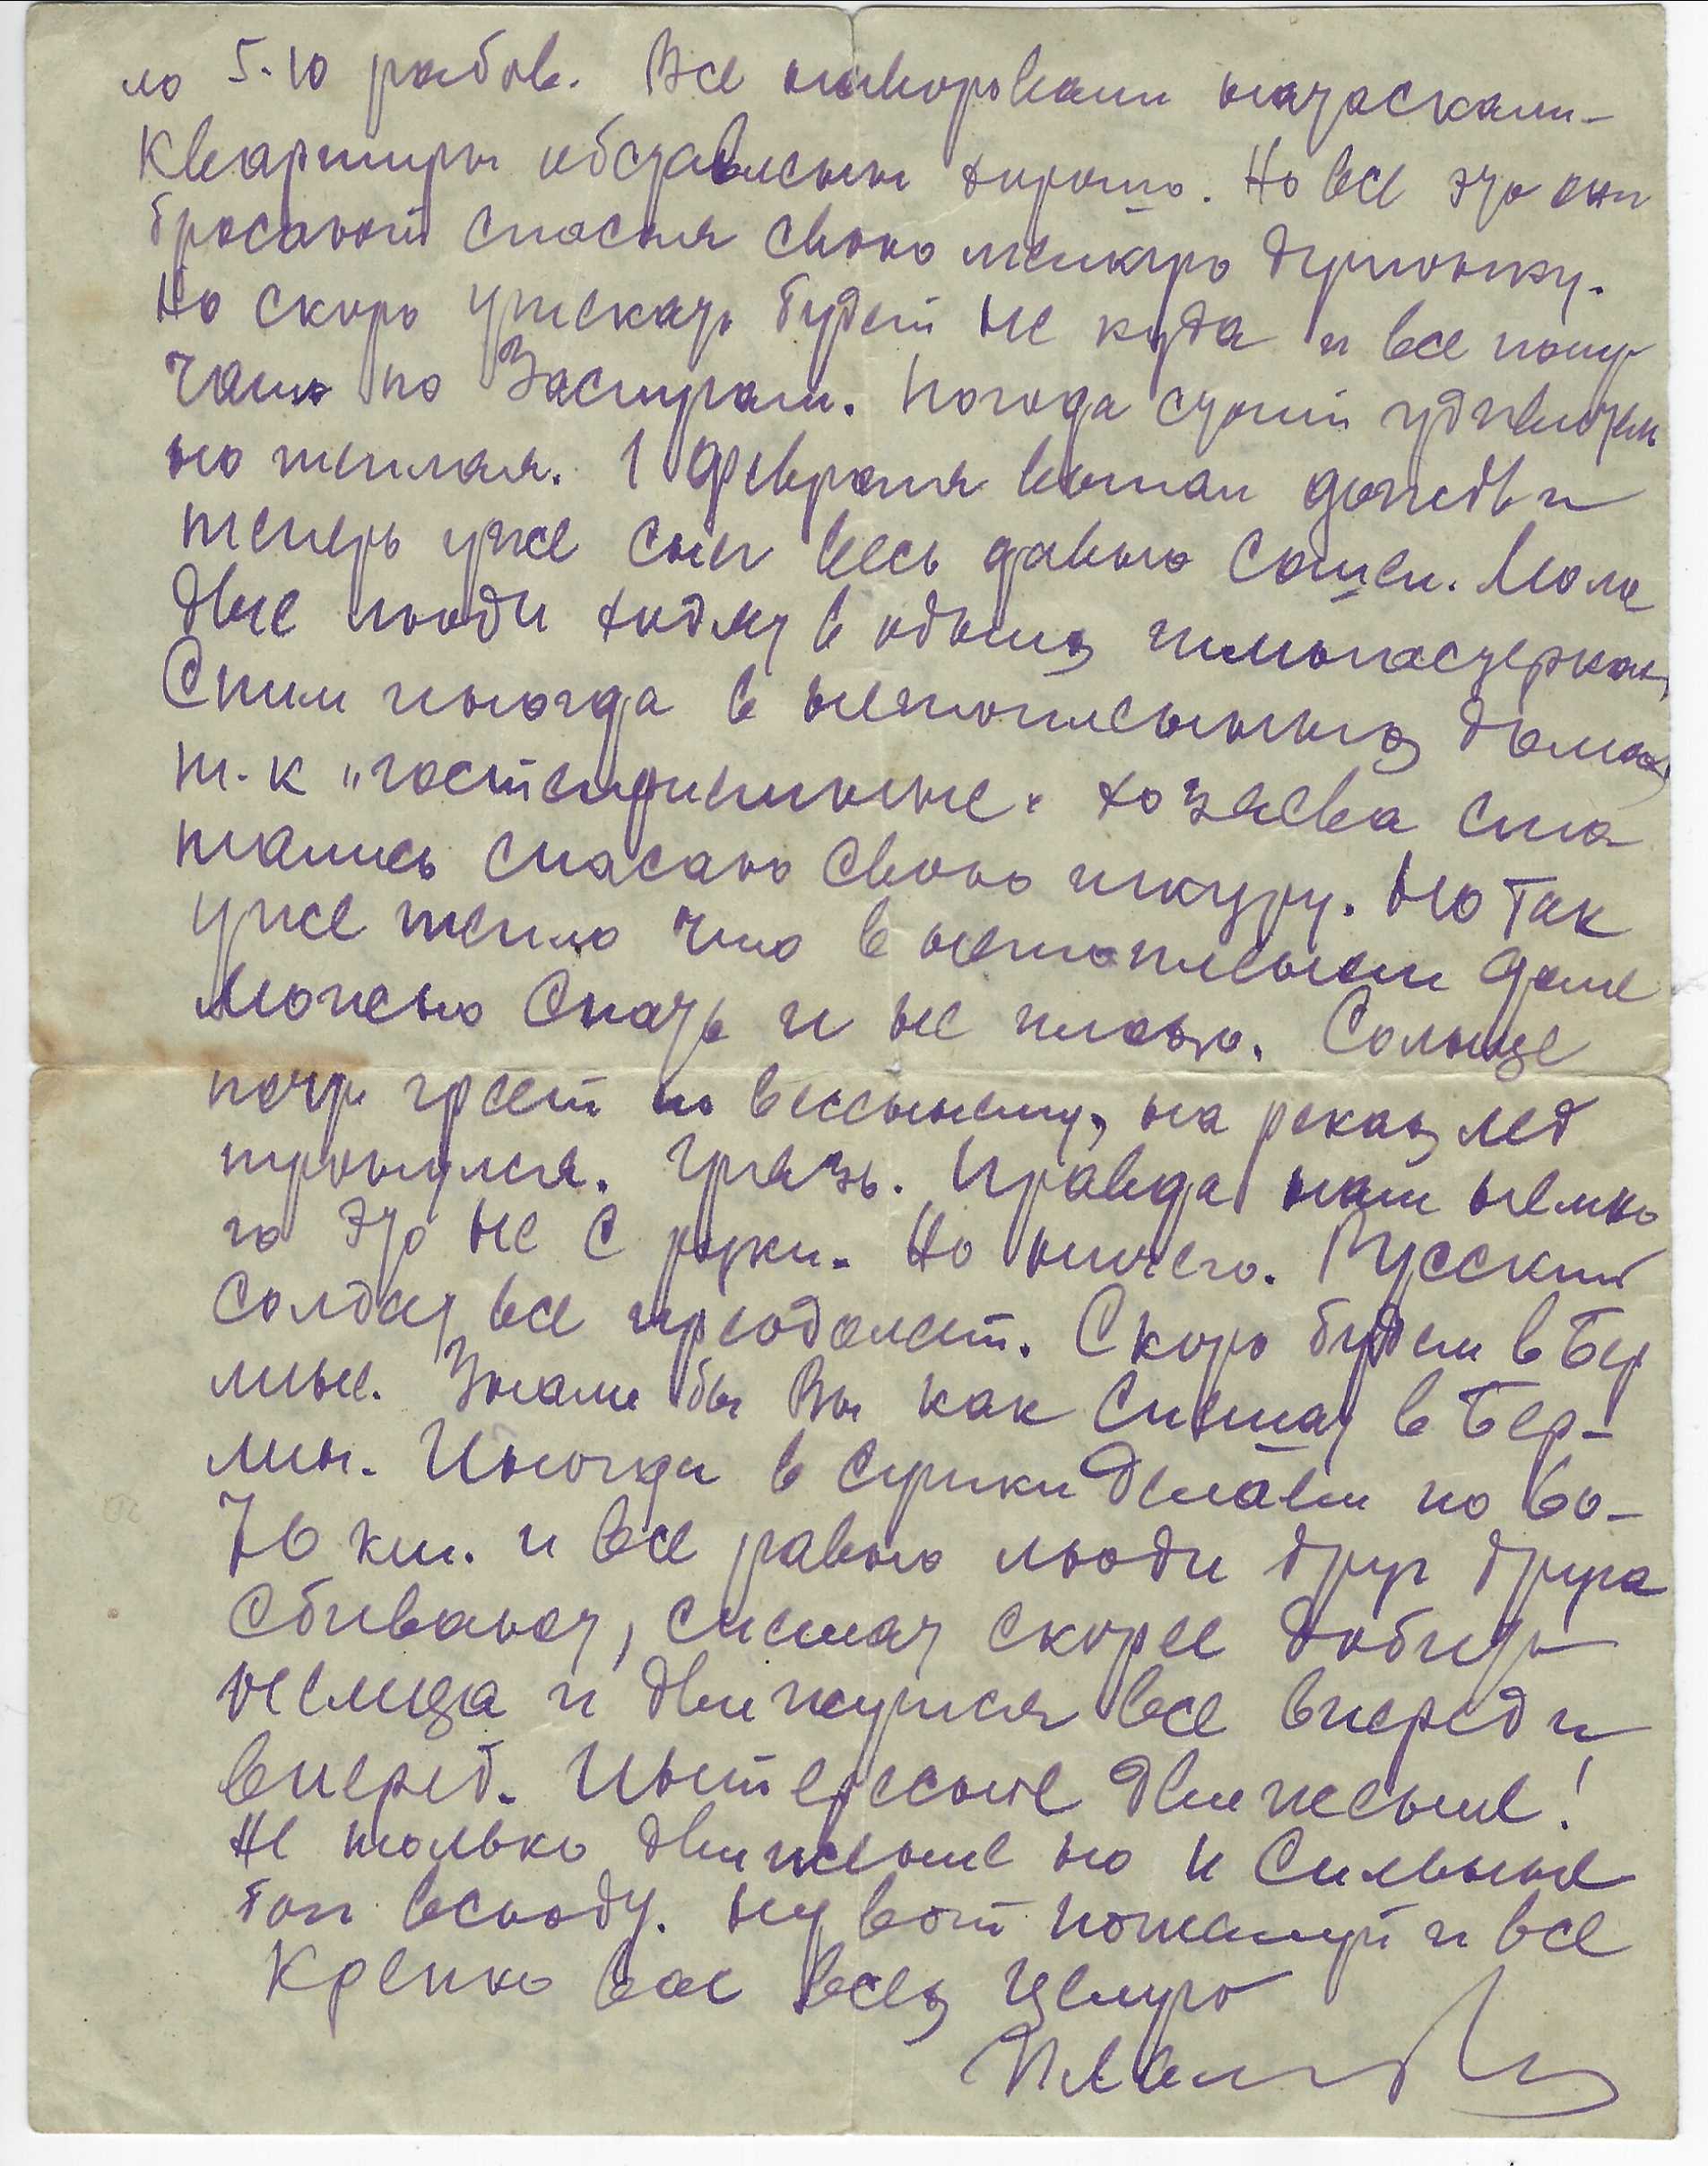 ло 5-10 рабов. Все наворовали натаскали.
Квартиры обставлены хорошо. Но все это они
бросают спасая свою мелкую душонку.
Но скоро утекать будет не куда и все полу
чат по заслугам. Погода стоит удивитель
но теплая. 1 февраля выпал дождь и
теперь уже снег весь давно сошел. Моло
дые люди ходят в одних гимнастерках,
Спим иногда в нетопленных домах
т.к "гостеприимные" хозяева сма
тались спасаю свою шкуру. Но так
уже тепло что в нетопленом доме
можно спать и не плохо. Солнце
почти греет по весеннему, на реках лед
тронулся. Грязь. Правда нам немно
го это не с руки. Но ничего. Русский
солдат все преодолеет. Скоро будем в Бер
лине. Знали бы Вы как спешат в Бер-
лин. Иногда в сутки делаем по 60-
70 км. и все равно люди друг друга
сбивают, спешат скорее добить
немца и движутся все вперед и
вперед. Интересное движение!
Не только движение но и сильные
бои всюду. Ну вот пожалуй и все
Крепко вас всех целую